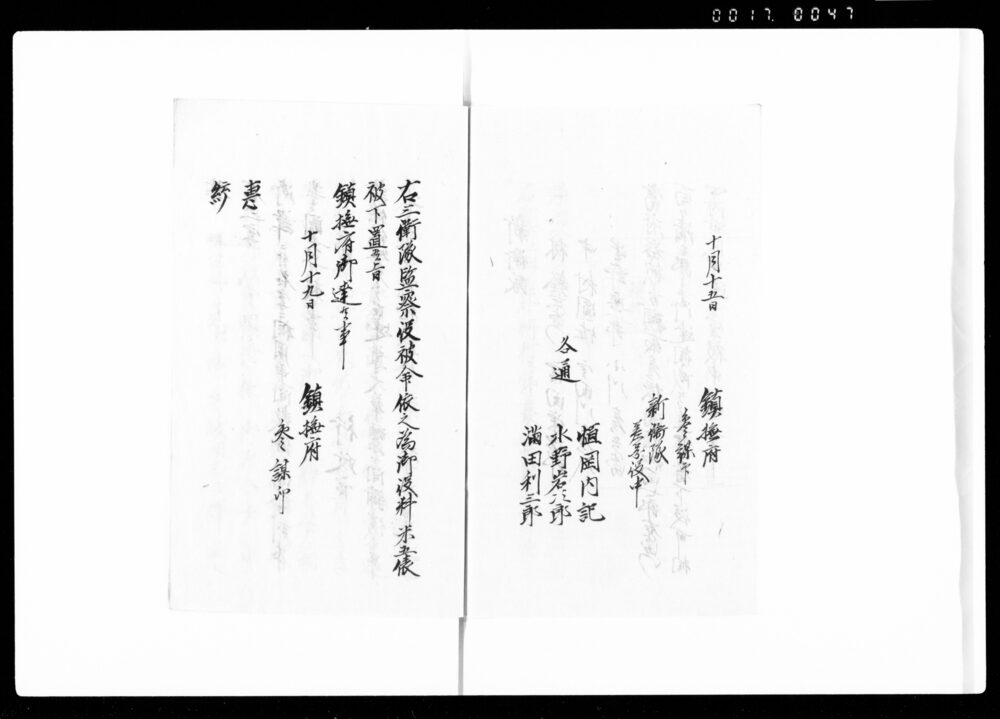 0017 0047
十月十五日
鎮撫府
参謀下
新衛隊
恒岡内記
水野岩次郎
満田利三郎
各通
右三衛隊監察役被命依之為御役料米五俵
被下置候旨
鎮撫府御達之事
十月十九日
鎮撫府
参謀印